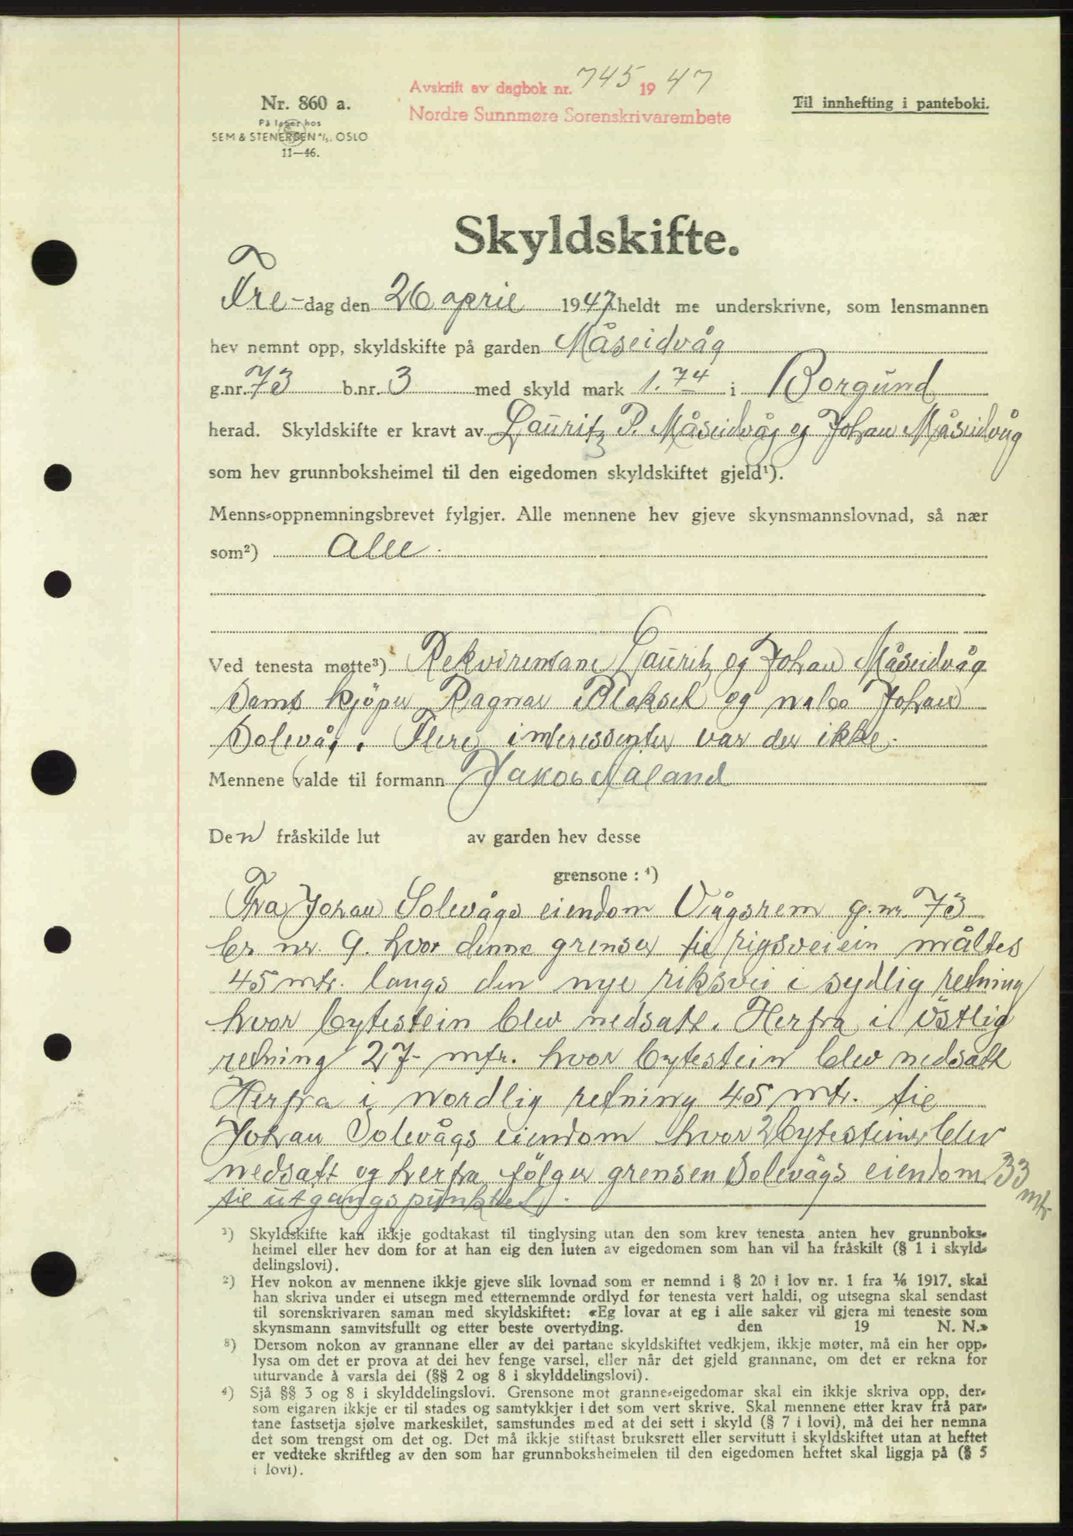 Avskrift av dagbok nr. 745 1947
Nordre Sunnmøre Sorenskrivarembete
Nr. 860 a.
På lager hos
SEM & STENERSEN A/S. OSLO
11—46.
Til innhefting i panteboki.
Skyldskifte.
Fre-dag den 26 april 1947 heldt me underskrivne, som lensmannen
hev nemnt opp, skyldskifte på garden Måseidvåg
g.nr. 73 b.nr. 3 med skyld mark 1.74 i Borgund
herad. Skyldskifte er kravt av Lauritz P. Måseidvåg og Johan Måseidvåg
som hev grunnboksheimel til den eigedomen skyldskiftet gjeld¹).
Menns-oppnemningsbrevet fylgjer. Alle mennene hev gjeve skynsmannslovnad, så nær
som²) Alle.
Ved tenesta møtte³) Rekvirentane Lauritz og Johan Måseidvåg
Samt kjöper Ragnar Blaksel og nabo Johan
Solevåg. Flere interessenter var der ikke.
Mennene valde til formann Jakob Aaland
Den fråskilde lut av garden hev desse
grensone : ⁴)
Fra Johan Solevågs eiendom Vågsrem g.nr. 73
br. nr. 9. hvor denne grenser til rigsveiein måltes
45 mtr. langs den nye riksvei i sydlig retning
hvor bytestein blev nedsatt. Herfra i östlig
retning 27- mtr. hvor bytestein blev nedsatt
Herfra i nordlig retning 45 mtr. til
Johan Solevågs eiendom hvor 2 bytesteiner blev
nedsatt og herfra følger grensen Solevågs eiendom 33 mtr
til utgangspunktet.
¹) Skyldskifte kan ikkje godtakast til tinglysing utan den som krev tenesta anten hev grunnboks-
heimel eller hev dom for at han eig den luten av eigedomen som han vil ha fråskilt (§ 1 i skyld-
delingslovi).
²) Hev nokon av mennene ikkje gjeve slik lovnad som er nemnd i § 20 i lov nr. 1 fra 1/6 1917, skal
han skriva under ei utsegn med etternemnde ordlyd før tenesta vert haldi, og utsegna skal sendast
til sorenskrivaren saman med skyldskiftet: «Eg lovar at eg i alle saker vil gjera mi teneste som
skynsmann samvitsfullt og etter beste overtyding. den 19 N. N.»
³) Dersom nokon av grannane eller av dei partane skyldskiftet vedkjem, ikkje møter, må ein her opp-
lysa om det er prova at dei hev fenge varsel, eller når det gjeld grannane, om det er rekna for
uturvande å varsla dei (§§ 2 og 8 i skylddelingslovi).
⁴) Sjå §§ 3 og 8 i skylddelingslovi. Grensone mot granne-eigedomar skal ein ikkje skriva opp, der-
som eigaren ikkje er til stades og samtykkjer i det som vert skrive. Skal mennene etter krav frå par-
tane fastsetja sjølve markeskilet, samstundes med at dei sett i skyld (§ 7 i lovi), må dei her nemna
det som trengst om det og. Det må ikkje stiftast bruksrett eller servitutt i skyldskiftet utan at heftet
er vedteke skriftleg av den som har grunnboksheimelen til den eigedomen heftet skal liggja på (§ 5
i lovi).